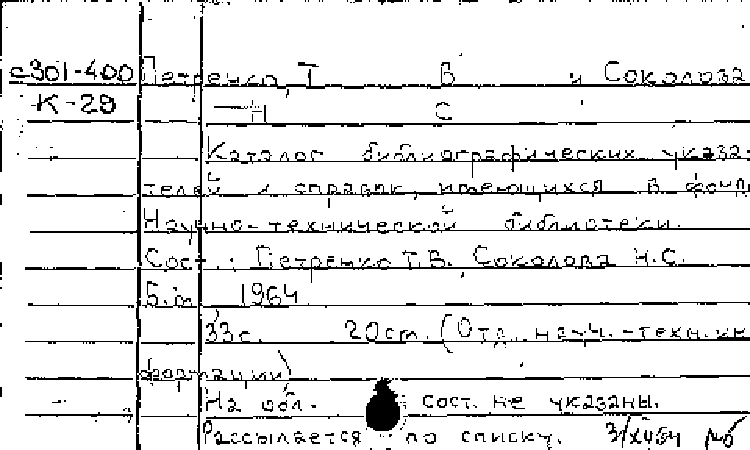 с301-400 Петренко, Т В и Соколова
К-29 Н С
Каталог библиографических указа-
телей и справок, имеющихся в фонд
Научно-технической библиотеки.
Сост.: Петренко Т.В. Соколова Н.С.
Б.м. 1964
33с. 20см. (Отд. науч.-техн. ин
формации)
На обл. сост. не указаны.
Рассылается по списку.